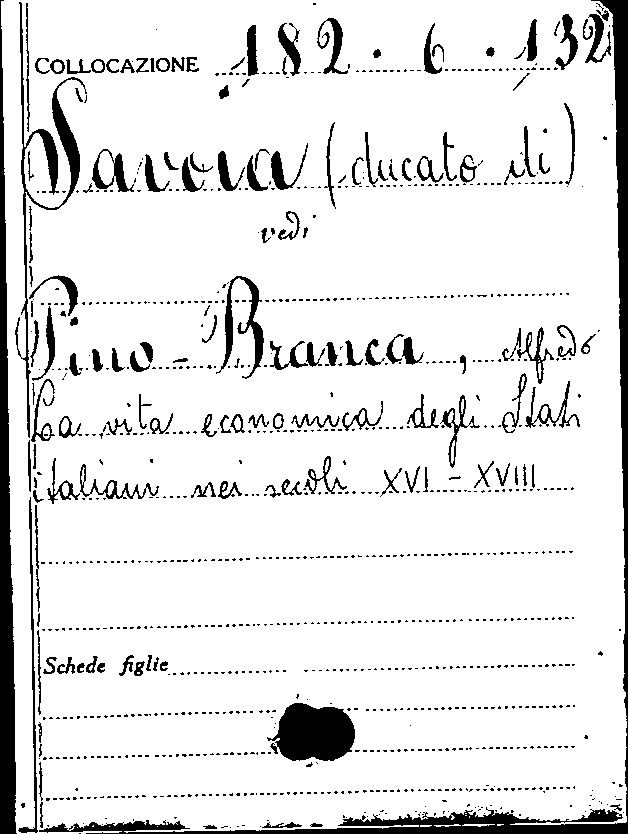 COLLOCAZIONE 182 . 6 . 132
Savoia (ducato di)
vedi
Pino-Branca, Alfredo
La vita economica degli Stati
italiani nei secoli XVI - XVIII
Schede figlie